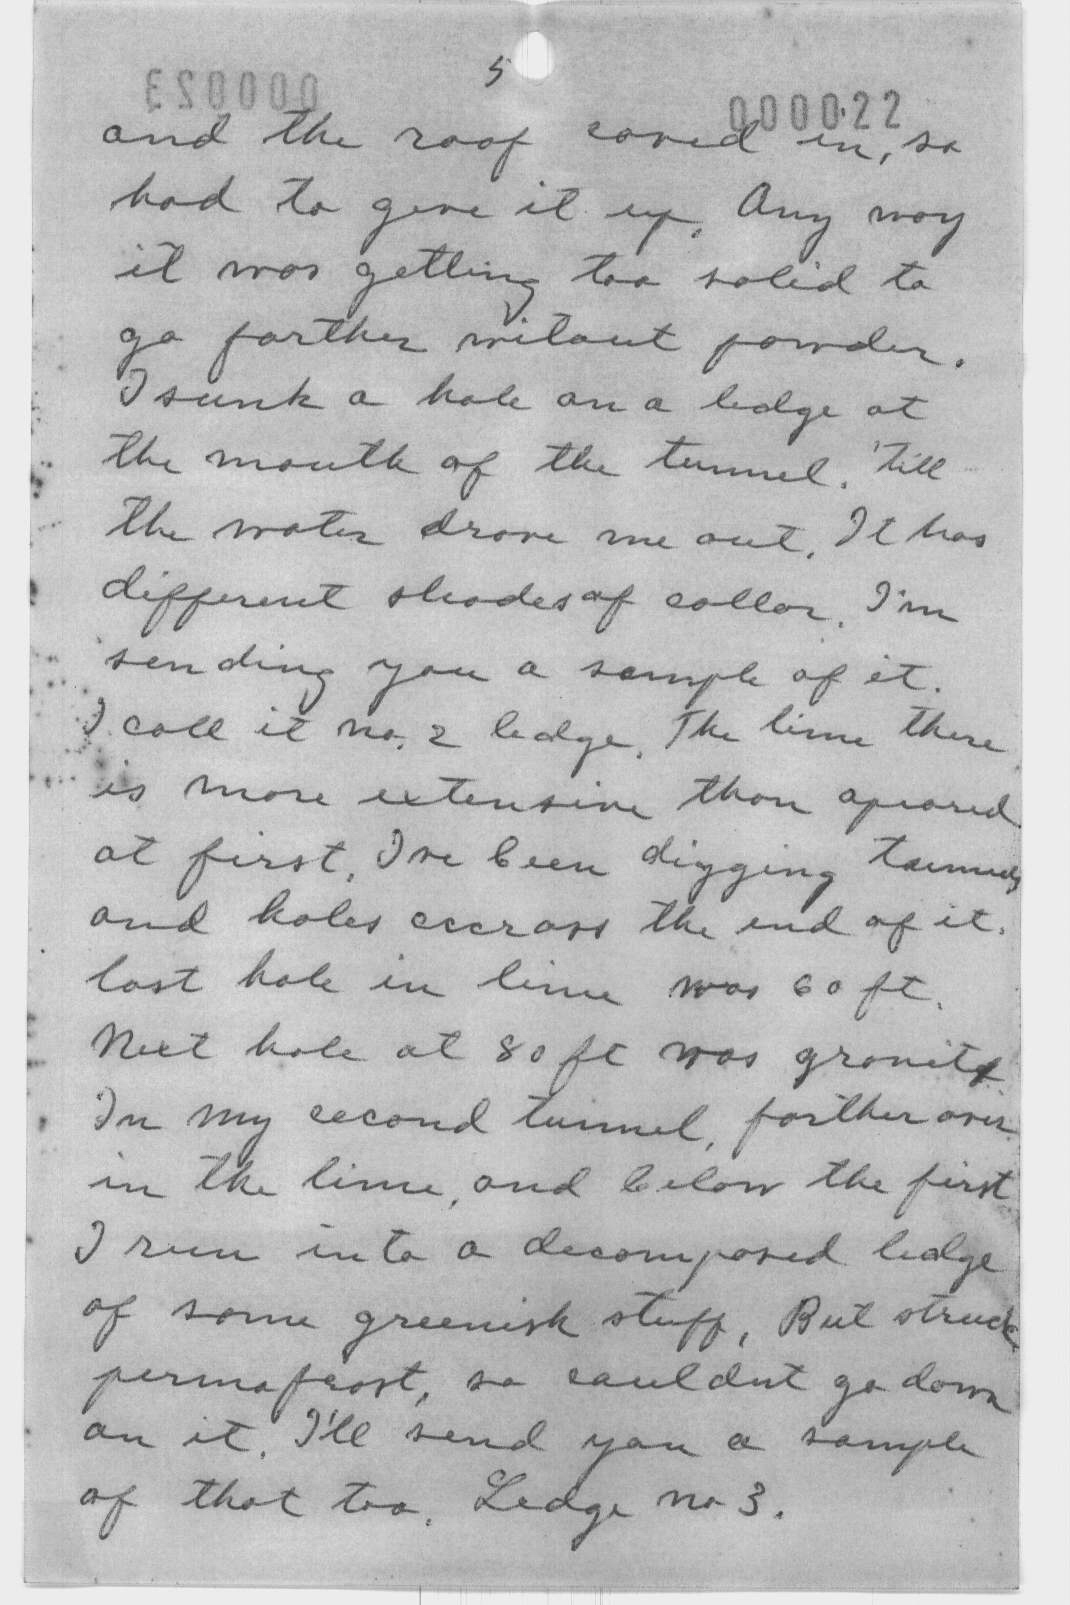 5
000023
000022
and the roof caved in, so
had to give it up. Any way
it was getting too solid to
go farther witout powder.
I sunk a hole on a ledge at
the mouth of the tunnel. 'till
the water drove me out. It has
different shades of collor. I'm
sending you a sample of it.
I call it no. 2 ledge. The lime there
is more extensive than apeared
at first. I've been digging tunnels
and holes accross the end of it.
last hole in lime was 60 ft.
Next hole at 80 ft was granite
In my second tunnel, farther over
in the lime, and below the first
I run into a decomposed ledge
of some greenish stuff, But struck
permafrost, so couldnt go down
on it. I'll send you a sample
of that too. Ledge no 3.